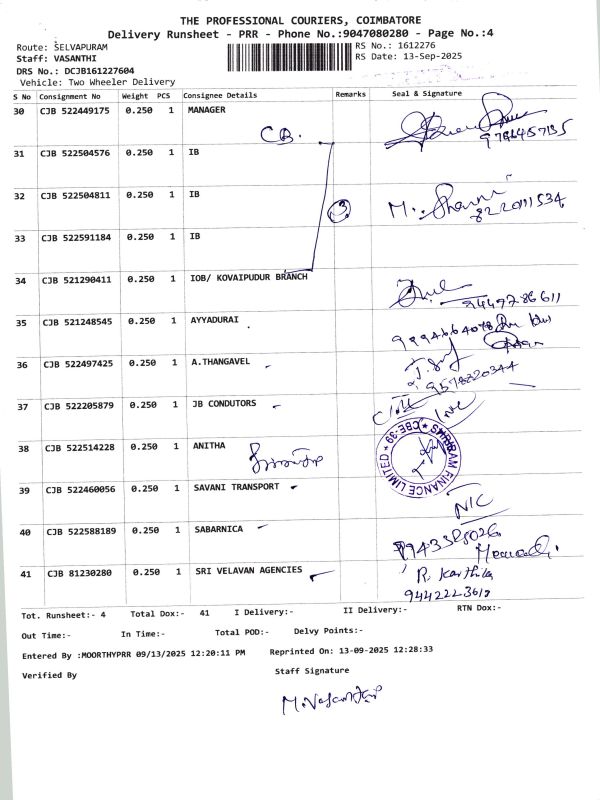 THE PROFESSIONAL COURIERS, COIMBATORE
Delivery Runsheet - PRR - Phone No.:9047080280 - Page No.:4
Route: SELVAPURAM
RS No.: 1612276
Staff: VASANTHI
RS Date: 13-Sep-2025
DRS No.: DCJB161227604
Vehicle: Two Wheeler Delivery
S No Consignment No Weight PCS Consignee Details Remarks Seal & Signature
30 CJB 522449175 0.250 1 MANAGER
CB.
31 CJB 522504576 0.250 1 IB
32 CJB 522504811 0.250 1 IB
3
33 CJB 522591184 0.250 1 IB
34 CJB 521290411 0.250 1 IOB/ KOVAIPUDUR BRANCH
9449786611
35 CJB 521248545 0.250 1 AYYADURAI
36 CJB 522497425 0.250 1 A.THANGAVEL
9578220344
37 CJB 522205879 0.250 1 JB CONDUTORS
38 CJB 522514228 0.250 1 ANITHA
SHRIRAM FINANCE LIMITED * CBE-39 *
39 CJB 522460056 0.250 1 SAVANI TRANSPORT
N/C
40 CJB 522588189 0.250 1 SABARNICA
41 CJB 81230280 0.250 1 SRI VELAVAN AGENCIES
R. Karthika
9442223618
Tot. Runsheet:- 4 Total Dox:- 41 I Delivery:- II Delivery:- RTN Dox:-
Out Time:- In Time:- Total POD:- Delvy Points:-
Entered By :MOORTHYPRR 09/13/2025 12:20:11 PM Reprinted On: 13-09-2025 12:28:33
Verified By Staff Signature